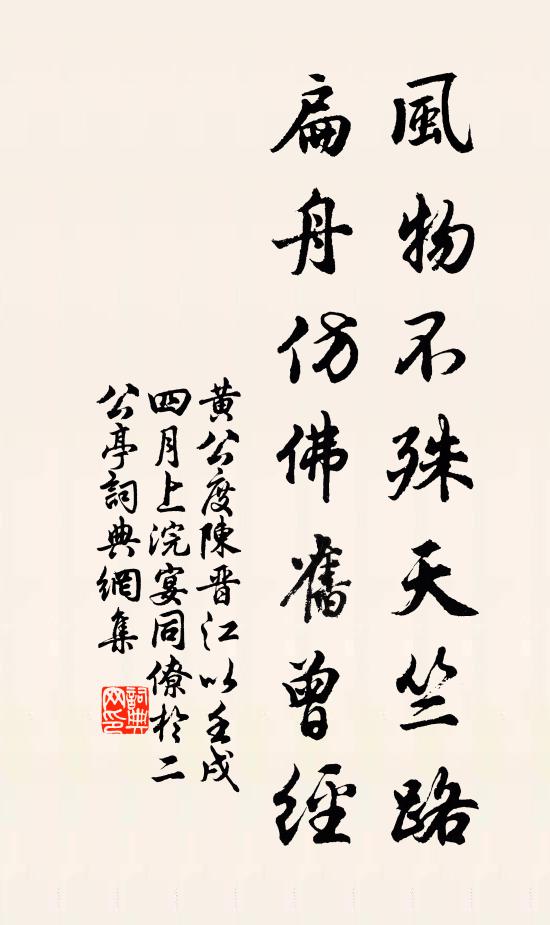 風物不殊天竺路
扁舟仿佛舊曾經
黃公度陳晋江以壬戌
四月上浣宴同僚於二
公亭詞典網集
詞典
网印